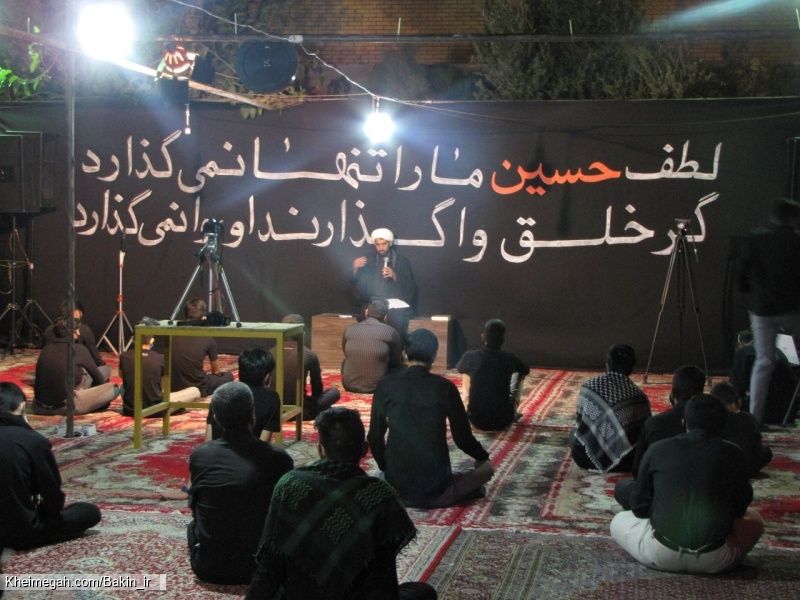 لطف حسین ما را تنها نمی گذارد
گر خلق وا گذارند او وا نمی گذارد
Kheimegah.com/Bakin_ir